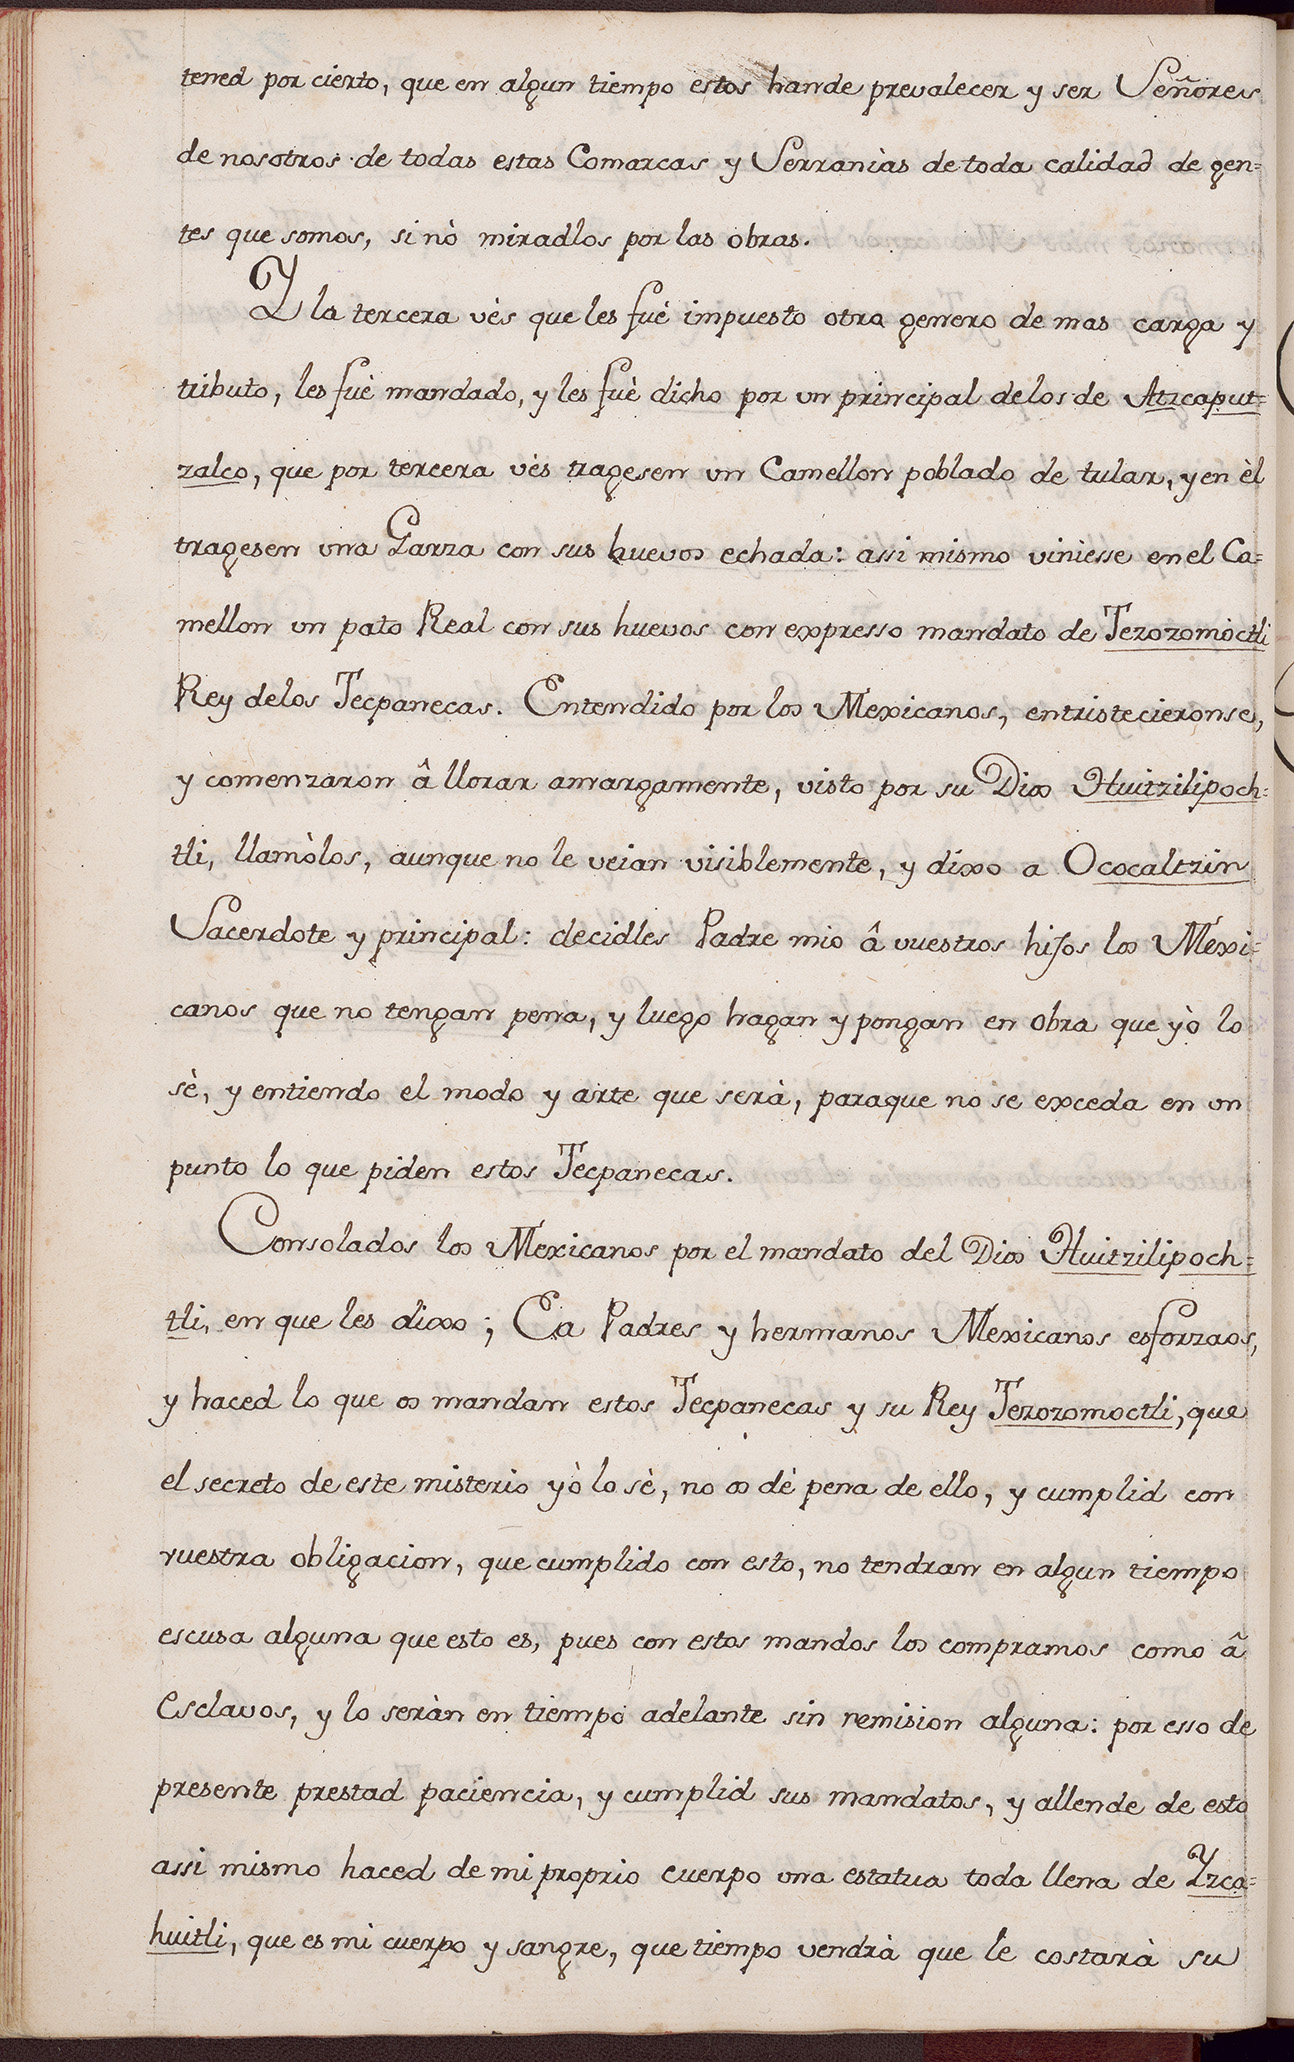 tened por cierto, que en algun tiempo estos hande prevalecer y ser Señores
de nosotros de todas estas Comarcas y Serranìas de toda calidad de gen=
tes que somos, si nò miradlos por las obras.
Y la tercera vès que les fuè impuesto otro genero de mas carga y
tributo, les fuè mandado, y les fuè dicho por un principal de los de Atzcaput=
zalco, que por tercera vès tragesen un Camellon poblado de tular, y en èl
tragesen una Garza con sus huevos echada: assi mismo viniesse en el Ca=
mellon un pato Real con sus huevos con expresso mandato de Tezozomòctli
Rey delos Tecpanecas. Entendido por los Mexicanos, entristecieronse,
y comenzaron â llorar amargamente, visto por su Dios Huitzilipoch=
tli, llamòlos, aunque no le veian visiblemente, y dixo a Ococaltzin
Sacerdote y principal: decidles Padre mio â vuestros hijos los Mexi=
canos que no tengan pena, y luego hagan y pongan en obra que yò lo
sè, y entiendo el modo y arte que serà, paraque no se exceda en un
punto lo que piden estos Tecpanecas.
Consolados los Mexicanos por el mandato del Dios Huitzilipoch=
tli, en que les dixo; Ea Padres y hermanos Mexicanos esforzaos,
y haced lo que os mandan estos Tecpanecas y su Rey Tezozomoctli, que
el secreto de este misterio yò lo sè, no os dè pena de ello, y cumplid con
vuestra obligacion, que cumplido con esto, no tendran en algun tiempo
escusa alguna que esto es, pues con estos mandos los compramos como â
Esclavos, y lo seràn en tiempo adelante sin remision alguna: por esso de
presente prestad paciencia, y cumplid sus mandatos, y allende de esto
assi mismo haced de mi proprio cuerpo una estatua toda llena de Yzca=
huitli, que es mi cuerpo y sangre, que tiempo vendrà que le costarà su